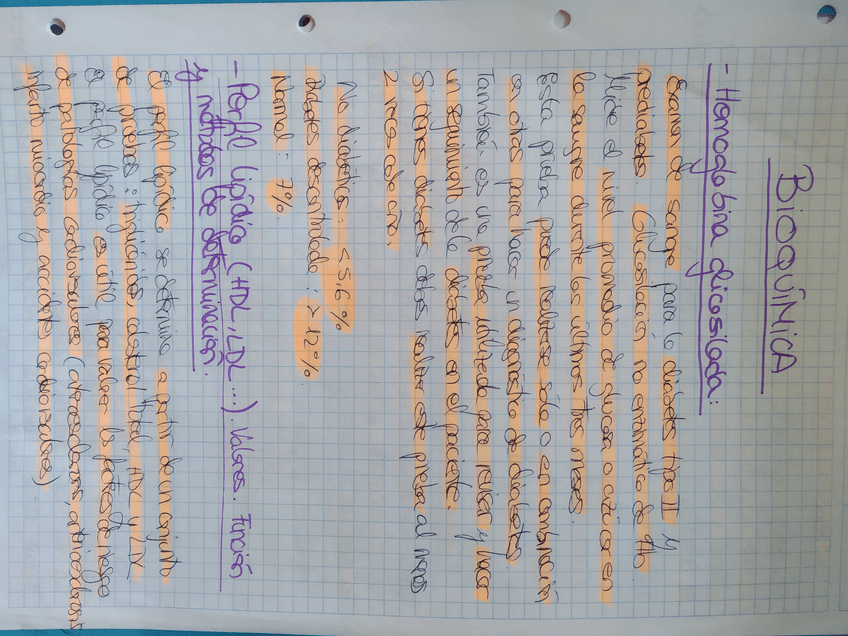 BIOQUÍMICA
- Hemoglobina glicosilada:
Examen de sangre para la diabetes tipo II y
prediabetes. Glucosilación no enzimática de Hb
Mide el nivel promedio de glucosa o azúcar en
la sangre durante los últimos tres meses.
Esta prueba puede realizarse sólo o en combinación
con otras para hacer un diagnóstico de diabetes.
También es una prueba utilizada para revisar y hacer
un seguimiento de la diabetes en el paciente.
Si tienes diabetes debes realizar esta prueba al menos
2 veces cada año.
No diabético: <5,6%
Diabetes descontrolada: >12%
Normal: 7%
- Perfil lipídico (HDL, LDL...). Valores. Función
y métodos de determinación.
El perfil lipídico se determina a partir de un conjunto
de pruebas: triglicéridos, colesterol total, HDL y LDL
El perfil lipídico es útil para valorar los factores de riesgo
de patologías cardiovasculares (aterosclerosis, arteriosclerosis
infarto miocardio y accidente cardiovascular)